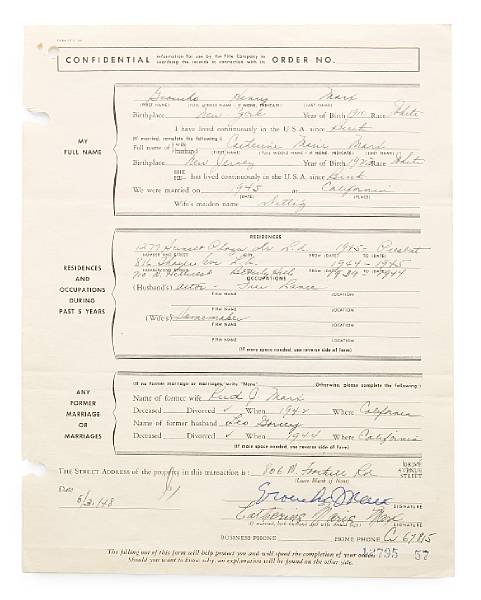 CONFIDENTIAL information for use by the Title Company in searching the records in connection with its ORDER NO.
MY FULL NAME
Groucho Henry Marx
(FIRST NAME) (FULL MIDDLE NAME - IF NONE, INDICATE) (LAST NAME)
Birthplace New York Year of Birth Race White
I have lived continuously in the U.S.A. since Birth
(If married, complete the following)
Full name of wife husband Catherine Marie Marx
(FIRST NAME) (FULL MIDDLE NAME - IF NONE, INDICATE) (LAST NAME)
Birthplace New Jersey Year of Birth Race White
SHE HE has lived continuously in the U.S.A. since Birth
We were married on 1945 at California
(DATE) (PLACE)
Wife's maiden name Dittig
RESIDENCES AND OCCUPATIONS DURING PAST 5 YEARS
RESIDENCES
1277 Sunset Plaza Dr L.A. 1945 - Present
NUMBER AND STREET CITY FROM (DATE) TO (DATE)
L.A. 1944 - 1945
NUMBER AND STREET CITY FROM (DATE) TO (DATE)
710 N. Hillcrest Beverly Hills 1939 - 1944
OCCUPATIONS
(Husband's) actor - Free Lance
FIRM NAME LOCATION
FIRM NAME LOCATION
(Wife's) Homemaker
FIRM NAME LOCATION
FIRM NAME LOCATION
(If more space needed, use reverse side of form)
ANY FORMER MARRIAGE OR MARRIAGES
(If no former marriage or marriages, write "None") Otherwise, please complete the following:)
Name of former wife Ruth J Marx
Deceased Divorced ✓ When 1942 Where California
Name of former husband Leo Gorcey
Deceased Divorced ✓ When 1944 Where California
(If more space needed, use reverse side of form)
THE STREET ADDRESS of the property in this transaction is: 806 N. Foothill Rd DRIVE AVENUE STREET
(Leave Blank if None)
Date
Groucho J Marx
SIGNATURE
Catherine Marie Marx
SIGNATURE
BUSINESS PHONE HOME PHONE
The filling out of this form will help protect you and will speed the completion of your order.
Should you want to know why, an explanation will be found on the other side.
57